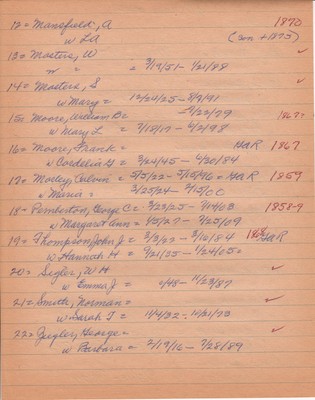 12 = Mansfield, A 1870
w LA (2m + 1875)
13 = Masters, W ✓
" " = 3/19/51 - 1/21/88
14 = Masters, S ✓
w Mary = 12/24/25 - 8/9/91
15 = Moore, William B = -2/22/79 1867?
w Mary L = 7/18/17 - 4/21/98
16 = Moore, Frank = HAR 1867
w Cordelia H = 3/24/45 - 4/20/84
17 = Motley, Calvin = 5/5/22 - 5/15/96 = HAR 1859
w Maria = 3/25/24 - 8/15/00
18 = Pemberton, George C = 3/23/25 - 1858-9
w Margaret Ann = 4/5/27 - 9/25/09
19 = Thompson, John J = 2/3/23 - 3/10/84 HAR
w Hannah H = 9/21/25 - 1/24/05
20 = Sigler, W H ✓
w Emma J = 4/48 - 11/23/87
21 = Smith, Norman = ✓
w Sarah T = 11/4/32 - 10/21/73
22 = Zeigler, George = ✓
w Barbara = 2/19/16 - 7/28/89